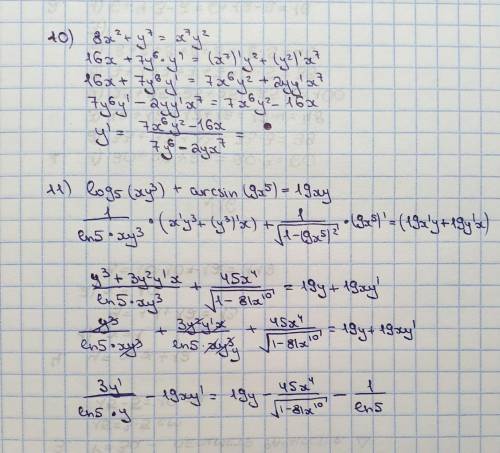 10) 8x² + y⁷ = x⁷y²
16x + 7y⁶·y' = (x⁷)'y² + (y²)'x⁷
16x + 7y⁶y' = 7x⁶y² + 2yy'x⁷
7y⁶y' - 2yy'x⁷ = 7x⁶y² - 16x
y' = (7x⁶y² - 16x)/(7y⁶ - 2yx⁷) =
11) log₅(xy³) + arcsin(9x⁵) = 19xy
1/(ln5·xy³) · (x'y³ + (y³)'x) + 1/√(1-(9x⁵)²) · (9x⁵)' = (19x'y + 19y'x)
(y³ + 3y²y'x)/(ln5·xy³) + 45x⁴/√(1-81x¹⁰) = 19y + 19xy'
y³/(ln5·xy³) + 3y²y'x/(ln5·xy³) y + 45x⁴/√(1-81x¹⁰) = 19y + 19xy'
3y'/(ln5·y) - 19xy' = 19y - 45x⁴/√(1-81x¹⁰) - 1/ln5